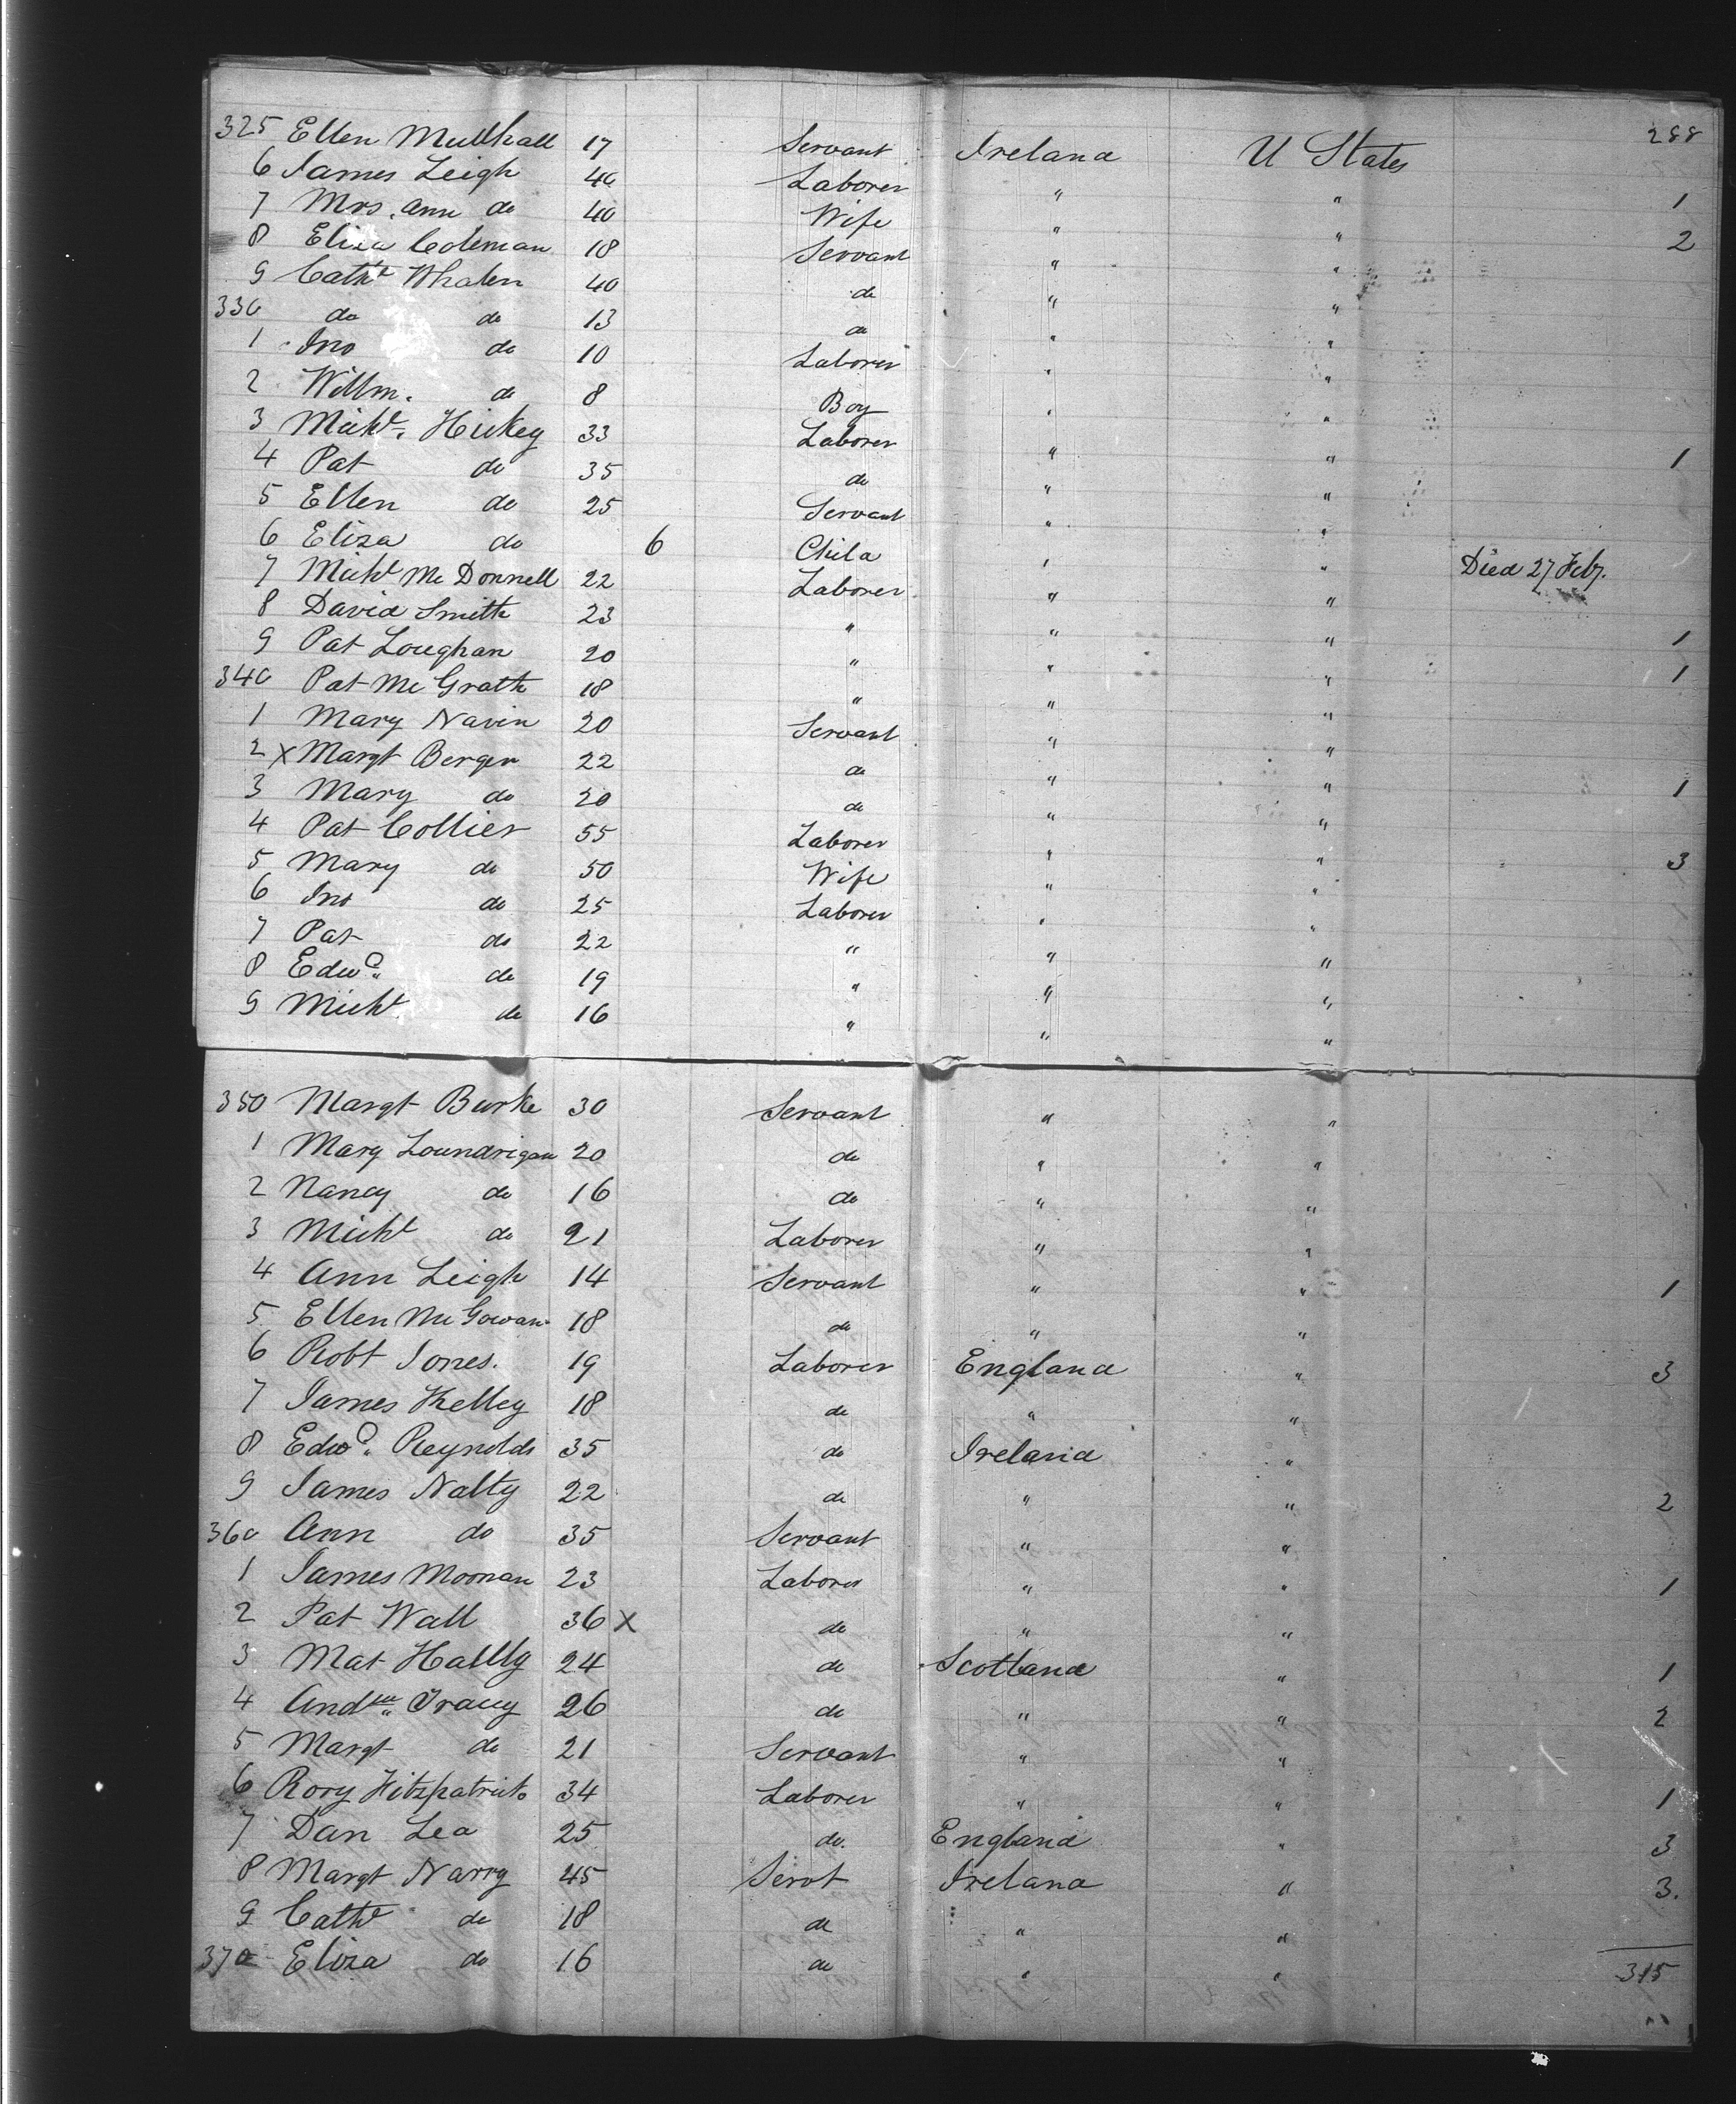 325 Ellen Mullhall 17 Servant Ireland U States 288
6 James Leigh 40 Laborer " " 1
7 Mrs. Ann do 40 Wife " " 2
8 Eliza Coleman 18 Servant " "
9 Cathe Whalen 40 do " "
330 do do 13 do " "
1 Jno do 10 Laborer " "
2 Willm. do 8 Boy " "
3 Michl. Hickey 33 Laborer " " 1
4 Pat do 35 do " "
5 Ellen do 25 Servant " "
6 Eliza do 6 Child " " Died 27 Feby.
7 Michl Mc Donnell 22 Laborer " "
8 David Smith 23 " " " 1
9 Pat Loughan 20 " " " 1
340 Pat Mc Grath 18 " " "
1 Mary Navin 20 Servant " "
2 x Margt Berger 22 do " " 1
3 Mary do 20 do " "
4 Pat Collier 55 Laborer " " 3
5 Mary do 50 Wife " "
6 Jno do 25 Laborer " "
7 Pat do 22 " " "
8 Edwd. do 19 " " "
9 Michl do 16 " " "
350 Margt Burke 30 Servant " "
1 Mary Loundrigan 20 do " "
2 Nancy do 16 do " "
3 Michl do 21 Laborer " "
4 Ann Leigh 14 Servant " " 1
5 Ellen Mc Gowan 18 do " "
6 Robt Jones. 19 Laborer England " 3
7 James Kelley 18 do " "
8 Edwd. Reynolds 35 do Ireland "
9 James Nalty 22 do " " 2
360 Ann do 35 Servant " "
1 James Moonan 23 Laborer " " 1
2 Pat Wall 36 x do " "
3 Mat Hallly 24 do Scotland " 1
4 Andw. Tracey 26 do " " 2
5 Margt do 21 Servant " "
6 Rory Fitzpatrick 34 Laborer " " 1
7 Dan Lea 25 do. England " 3
8 Margt Narry 45 Servt Ireland " 3.
9 Cathe do 18 do " "
370 Eliza do 16 do " " 315